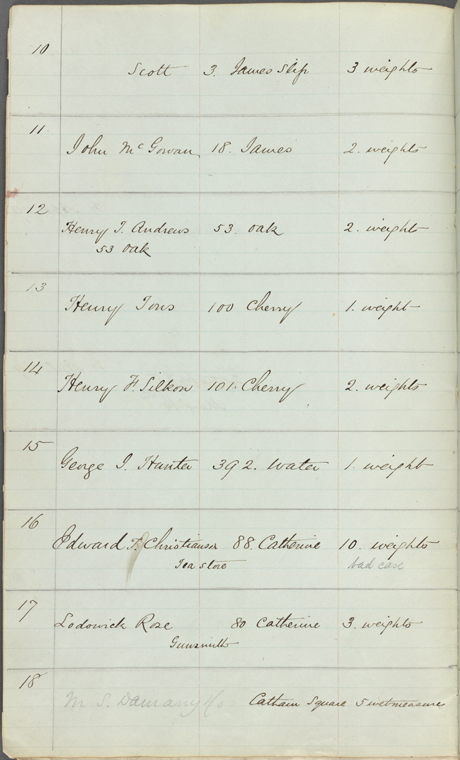 10
Scott 3. James Slip 3 weights
11
John McGowan 18. James 2. weights
12
Henry J. Andrews 53. Oak 2. weight
53 Oak
13
Henry Tons 100 Cherry 1. weight
14
Henry F. Silkon 101. Cherry 2. weights
15
George J. Hunter 392. Water 1. weight
16
Edward F. Christianson 88. Catherine 10. weights
Tea store bad case
17
Lodowick Rose 80 Catherine 3. weights
Gunsmith
18
M. S. Catham Square 5 wetmeasures